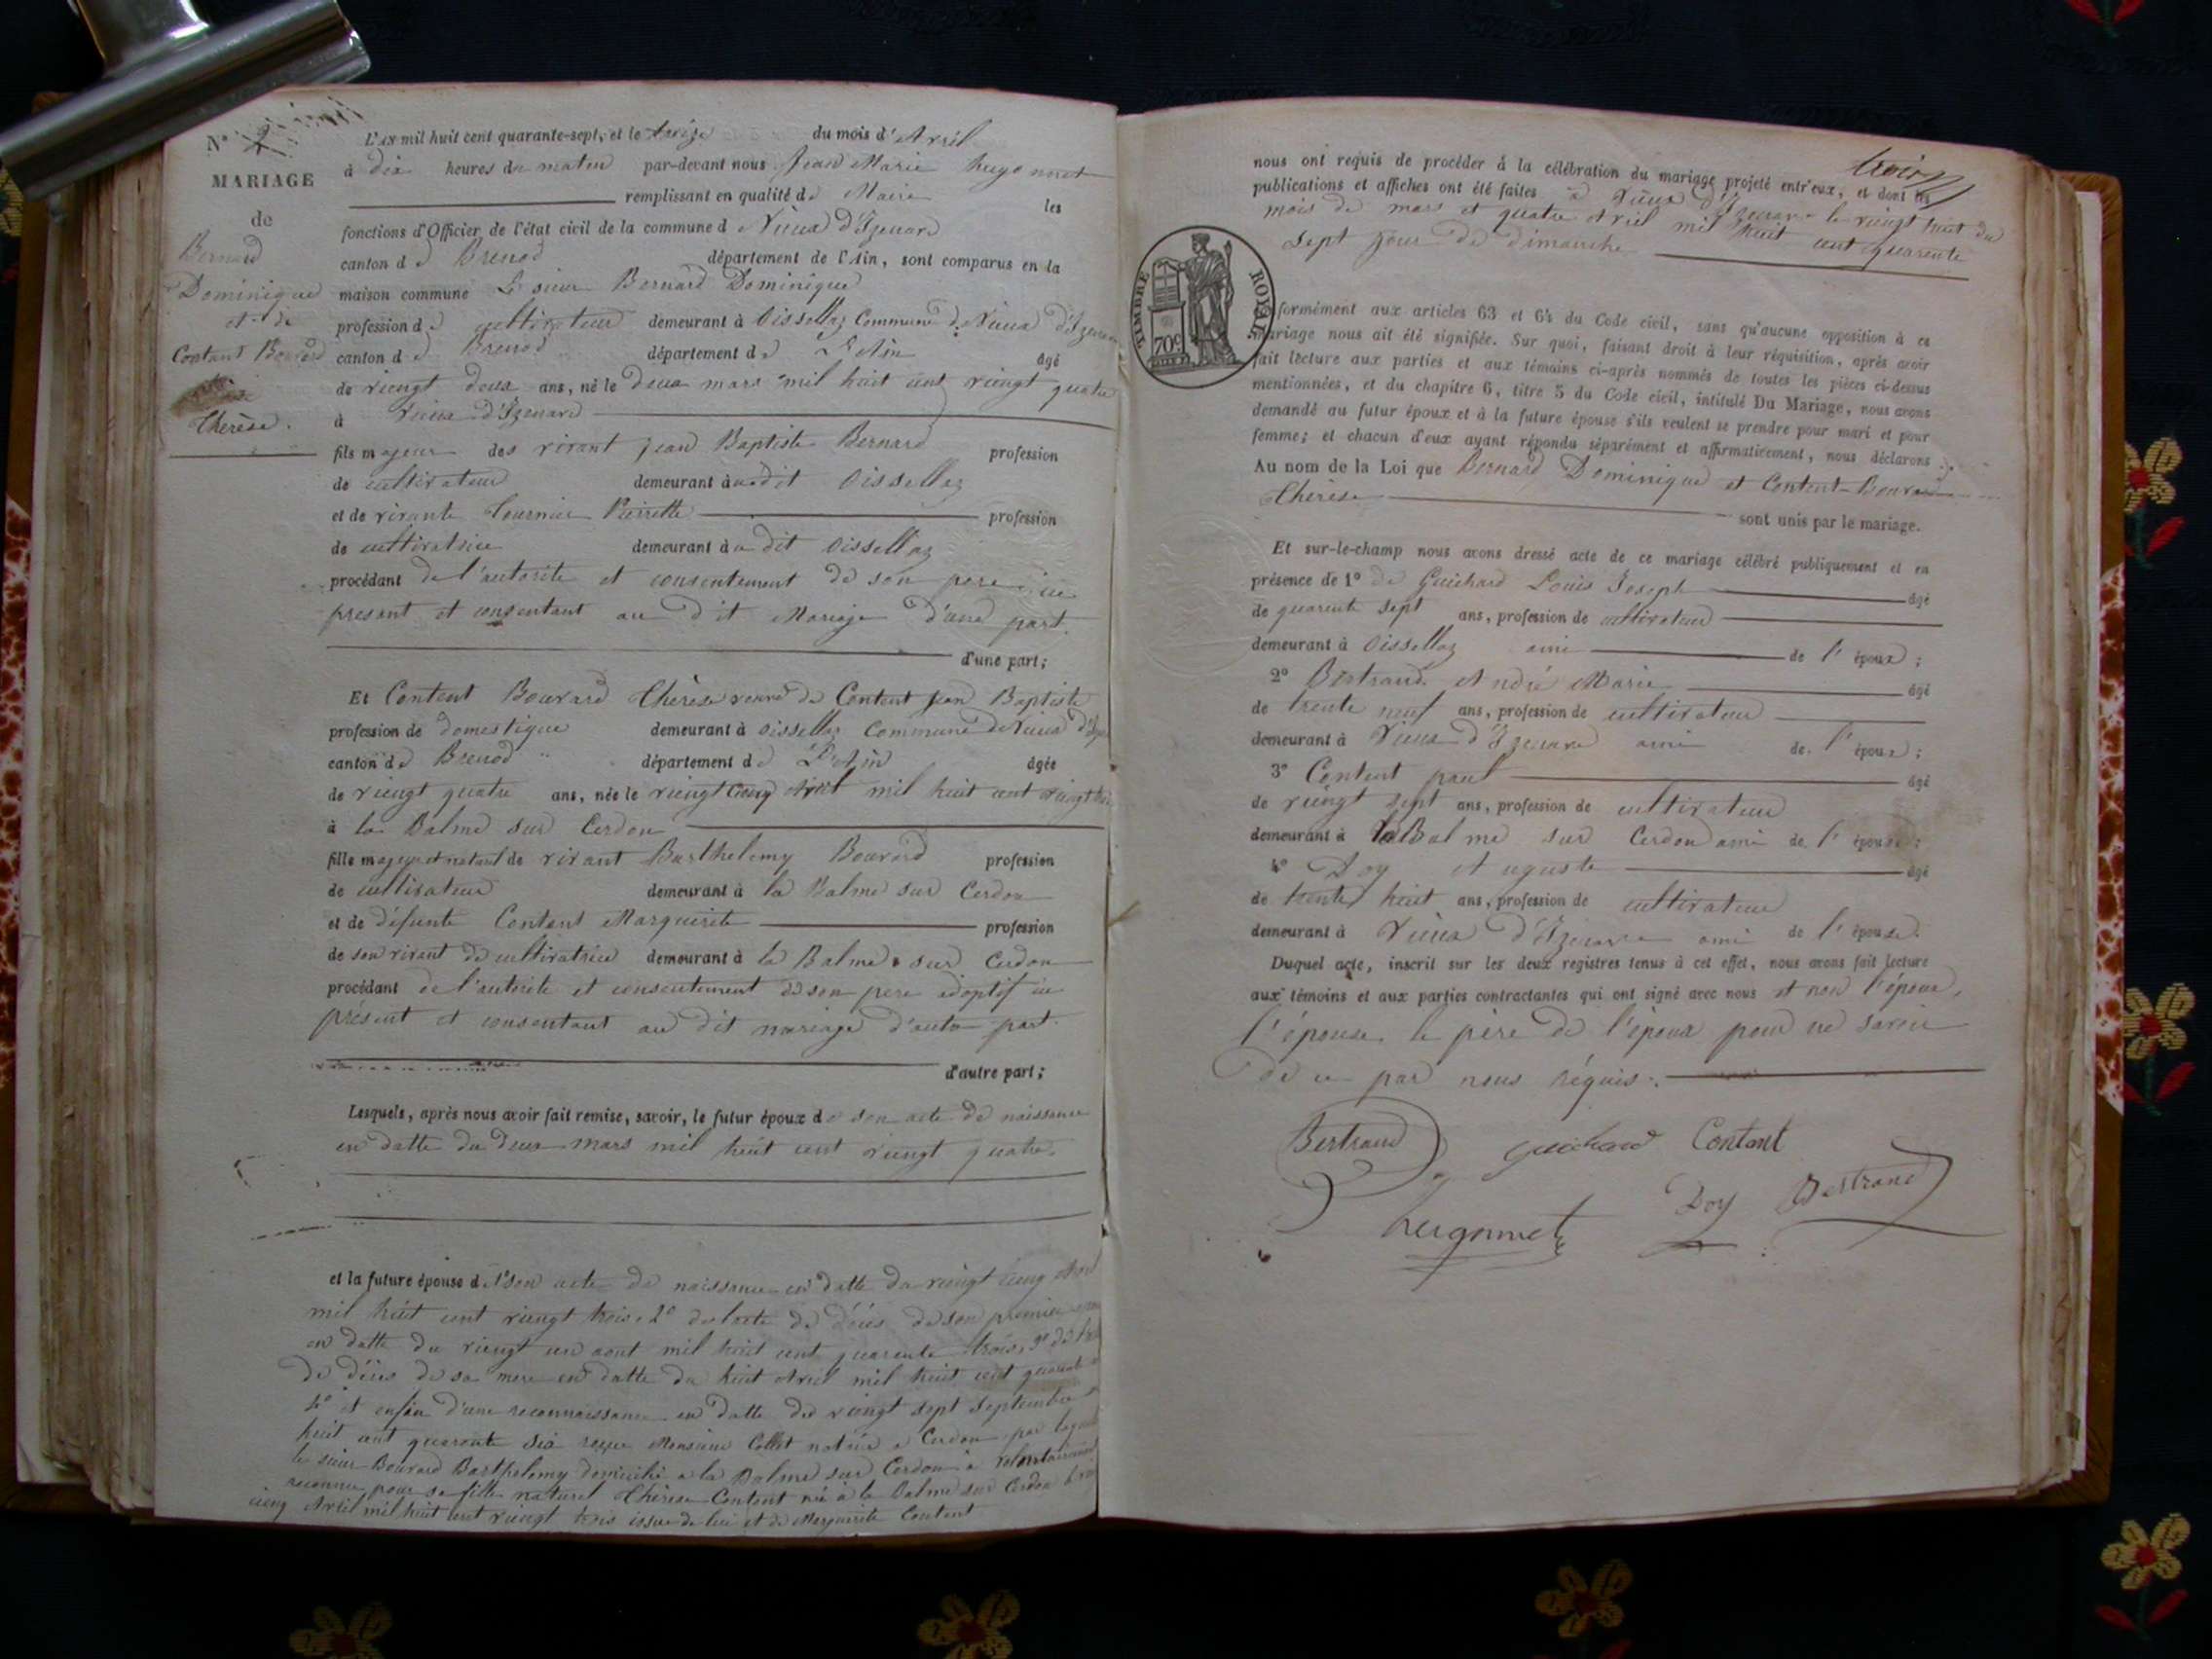 N° 2
MARIAGE
de
Bernard
Dominique
et de
Contant Bouvard
Thérèse.
L'AN mil huit cent quarante-sept, et le treize du mois d'Avril
à dix heures du matin par-devant nous Jean Marie hugonnet
remplissant en qualité de Maire les
fonctions d'Officier de l'état civil de la commune d Vieux d'Izenave
canton d e Brenod département de l'Ain, sont comparus en la
maison commune Le sieur Bernard Dominique
profession de cultivateur demeurant à Oissellaz Commune de Vieux d'Izenave
canton d e Brenod département de L'Ain âgé
de vingt deux ans, né le deux mars mil huit cent vingt quatre
à Vieux d'Izenave
fils majeur des vivant jean Baptiste Bernard profession
de cultivateur demeurant audit Oissellaz
et de vivante Tournier Pierrette profession
de cultivatrice demeurant au dit Oissellaz
procédant de l'autorité et consentement de son pere ici
present et consentant au dit Mariage d'une part.
d'une part;
Et Contant Bouvard Thérèse veuve de Contant jean Baptiste
profession de domestique demeurant à oissellaz Commune de Vieux d'Ize
canton de Brenod département de L'Ain âgée
de vingt quatre ans, née le vingt cinq Avril mil huit cent vingt trois
à la Balme sur Cerdon
fille majeur et naturel de vivant Barthelemy Bouvard profession
de cultivateur demeurant à la Balme sur Cerdon
et de défunte Contant Marguerite profession
de son vivant de cultivatrice demeurant à la Balme sur Cerdon
procédant de l'autorité et consentement de son pere adoptif ici
présent et consentant au dit mariage d'autre part.
d'autre part;
Lesquels, après nous avoir fait remise, savoir, le futur époux de son acte de naissance
en datte du deux mars mil huit cent vingt quatre.
et la future épouse d e 1° son acte de naissance en datte du vingt cinq Avril
mil huit cent vingt trois. 2° de l'acte de décès de son premier
en datte du vingt un aout mil huit cent quarante trois, 3° de l'acte
de décès de sa mere en datte du huit Avril mil huit cent quarante
4° et enfin d'une reconnaissance en datte du vingt sept septembre
huit cent quarante six reçue Monsieur Collet notaire a Cerdon par laquelle
le sieur Bouvard Barthelemy domicilié a la Balme sur Cerdon à volontairement
reconnu pour sa fille naturel Thérèse Contant née à la Balme sur Cerdon le vin
cinq Avril mil huit cent vingt trois issue de lui et de Marguerite Contant
trois
nous ont requis de procéder à la célébration du mariage projeté entr'eux, et dont les
publications et affiches ont été faites à Vieux d'Izenave le vingt huit du
mois de mars et quatre Avril mil huit cent quarante
sept jour de dimanche
TIMBRE ROYAL
70c
formément aux articles 63 et 64 du Code civil, sans qu'aucune opposition à ce
mariage nous ait été signifiée. Sur quoi, faisant droit à leur réquisition, après avoir
fait lecture aux parties et aux témoins ci-après nommés de toutes les pièces ci-dessus
mentionnées, et du chapitre 6, titre 5 du Code civil, intitulé Du Mariage, nous avons
demandé au futur époux et à la future épouse s'ils veulent se prendre pour mari et pour
femme; et chacun d'eux ayant répondu séparément et affirmativement, nous déclarons
Au nom de la Loi que Bernard Dominique et Contant-Bouvard
Thérèse
sont unis par le mariage.
Et sur-le-champ nous avons dressé acte de ce mariage célébré publiquement et en
présence de 1° de Guichard Louis Joseph âgé
de quarente sept ans, profession de cultivateur
demeurant à Oissellaz ami de l'époux;
2° Bertrand André Marie âgé
de trente neuf ans, profession de cultivateur
demeurant à Vieux d'Izenave ami de l'époux;
3° Contant paul âgé
de vingt sept ans, profession de cultivateur
demeurant à la Balme sur Cerdon ami de l'épouse;
4° Doy Auguste âgé
de trente huit ans, profession de cultivateur
demeurant à Vieux d'Izenave ami de l'épouse.
Duquel acte, inscrit sur les deux registres tenus à cet effet, nous avons fait lecture
aux témoins et aux parties contractantes qui ont signé avec nous et non l'époux,
l'épouse, le père de l'époux pour ne savoir
de ce par nous réquis.
Bertrand Guichard Contant
hugonnet Doy Bertrand